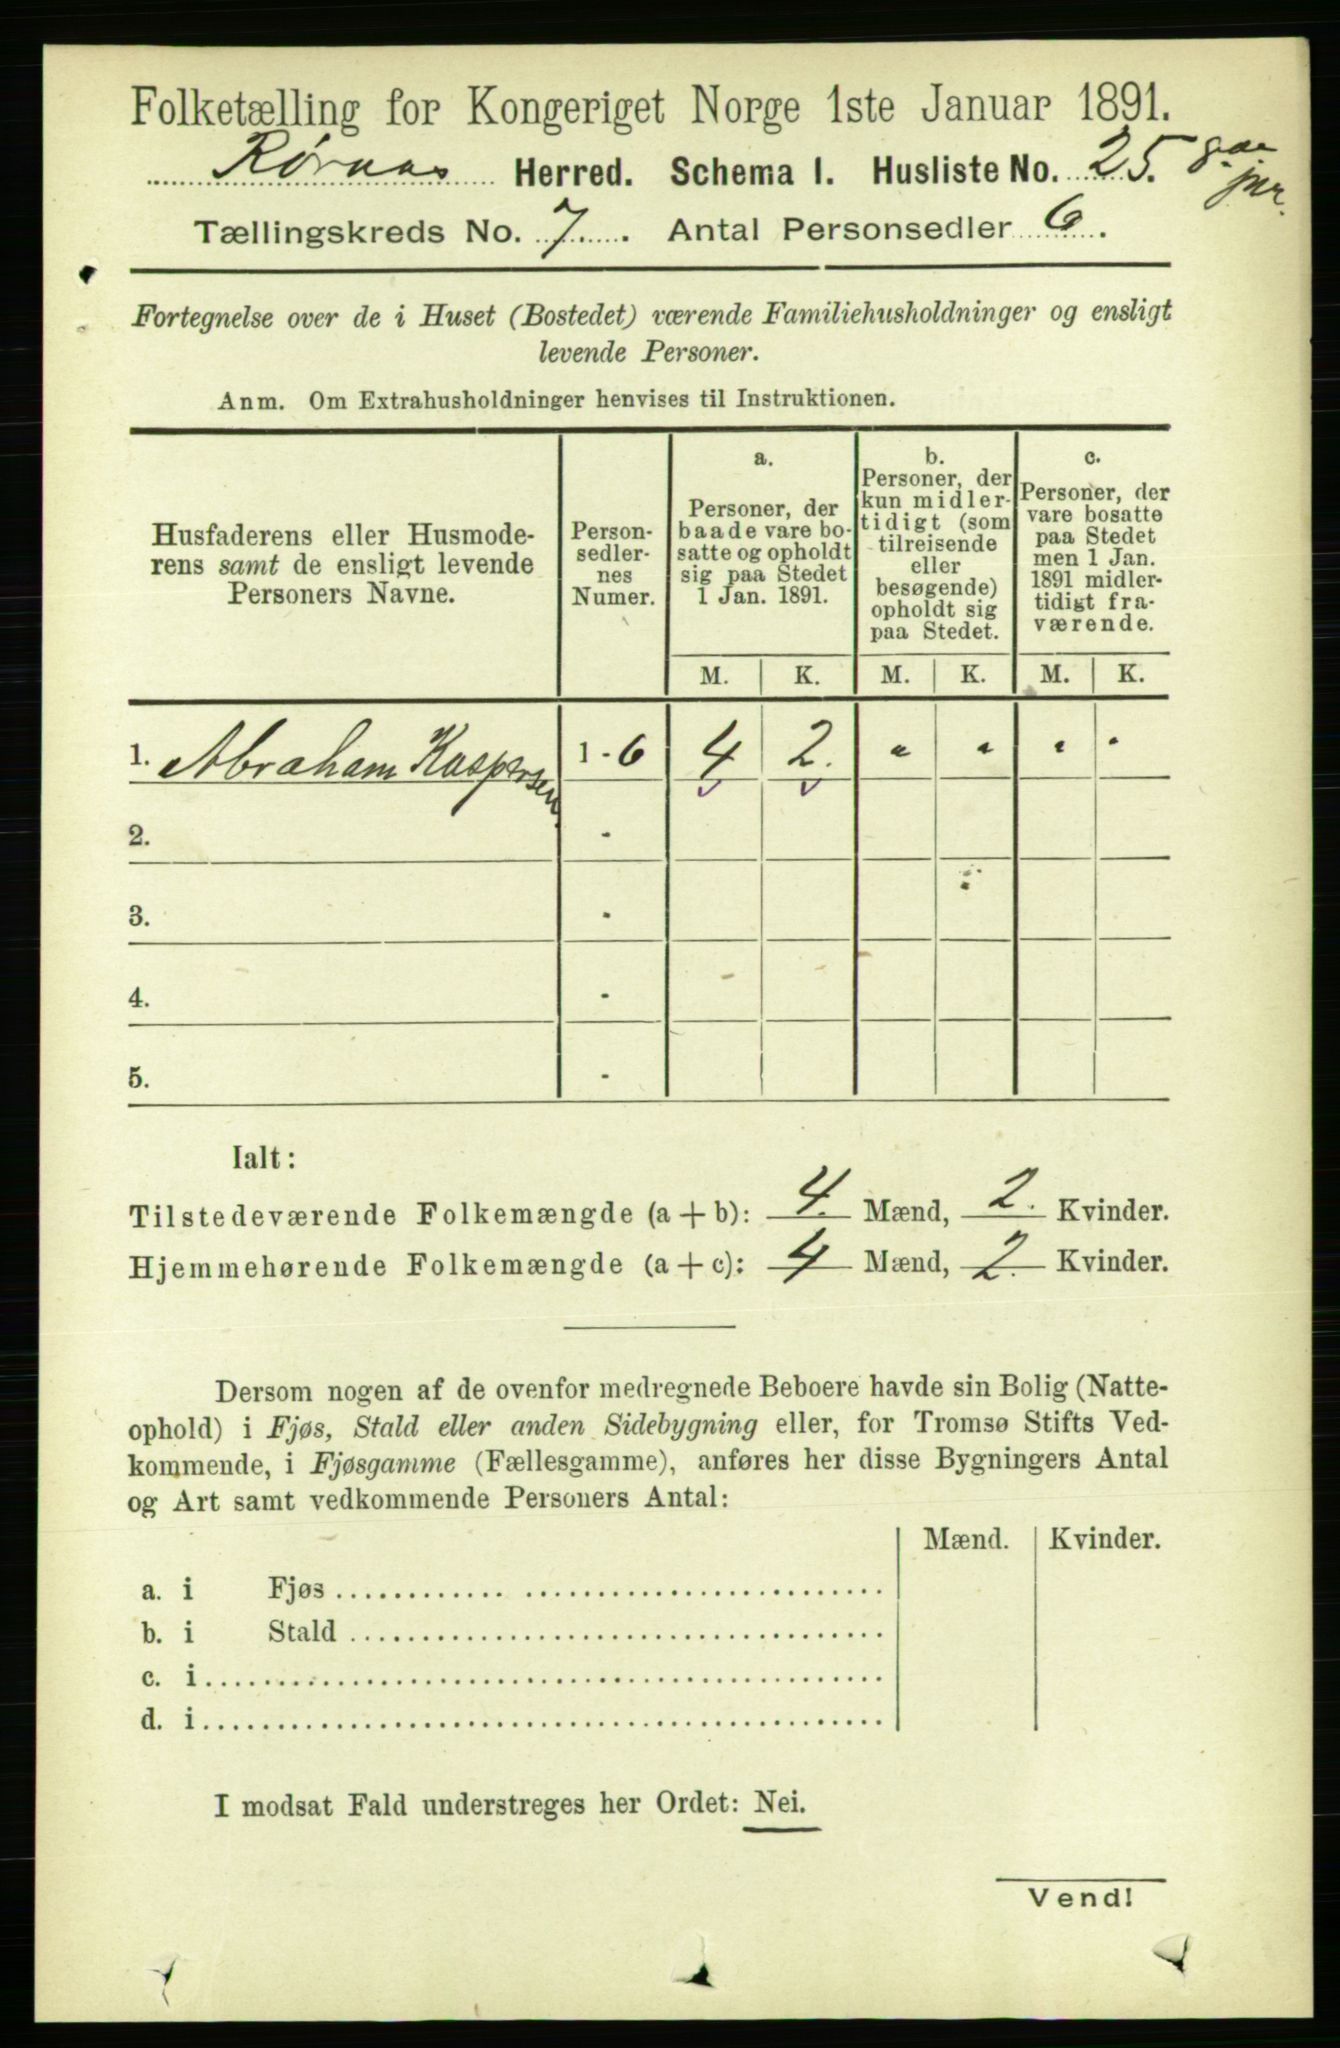 Folketælling for Kongeriget Norge 1ste Januar 1891.
Røraas Herred. Schema 1. Husliste No. 25.
Tællingskreds No. 7. Antal Personsedler 6.
Fortegnelse over de i Huset (Bostedet) værende Familiehusholdninger og ensligt
levende Personer.
Anm. Om Extrahusholdninger henvises til Instruktionen.
Husfaderens eller Husmode-
rens samt de ensligt levende
Personers Navne.
Person-
sedler-
nes
Numer.
a.
Personer, der
baade vare bo-
satte og opholdt
sig paa Stedet
1 Jan. 1891.
b.
Personer, der
kun midler-
tidigt (som
tilreisende
eller
besøgende)
opholdt sig
paa Stedet.
c.
Personer, der
vare bosatte
paa Stedet
men 1 Jan.
1891 midler-
tidigt fra-
værende.
M. K. M. K. M. K.
1. Abraham Kaspersen 1 - 6 4 2. " " " "
2. -
3. -
4. -
5. -
Ialt:
Tilstedeværende Folkemængde (a + b): 4. Mænd, 2. Kvinder.
Hjemmehørende Folkemængde (a + c): 4 Mænd, 2. Kvinder.
Dersom nogen af de ovenfor medregnede Beboere havde sin Bolig (Natte-
ophold) i Fjøs, Stald eller anden Sidebygning eller, for Tromsø Stifts Ved-
kommende, i Fjøsgamme (Fællesgamme), anføres her disse Bygningers Antal
og Art samt vedkommende Personers Antal:
Mænd. Kvinder.
a. i Fjøs
b. i Stald
c. i
d. i
I modsat Fald understreges her Ordet: Nei.
Vend!